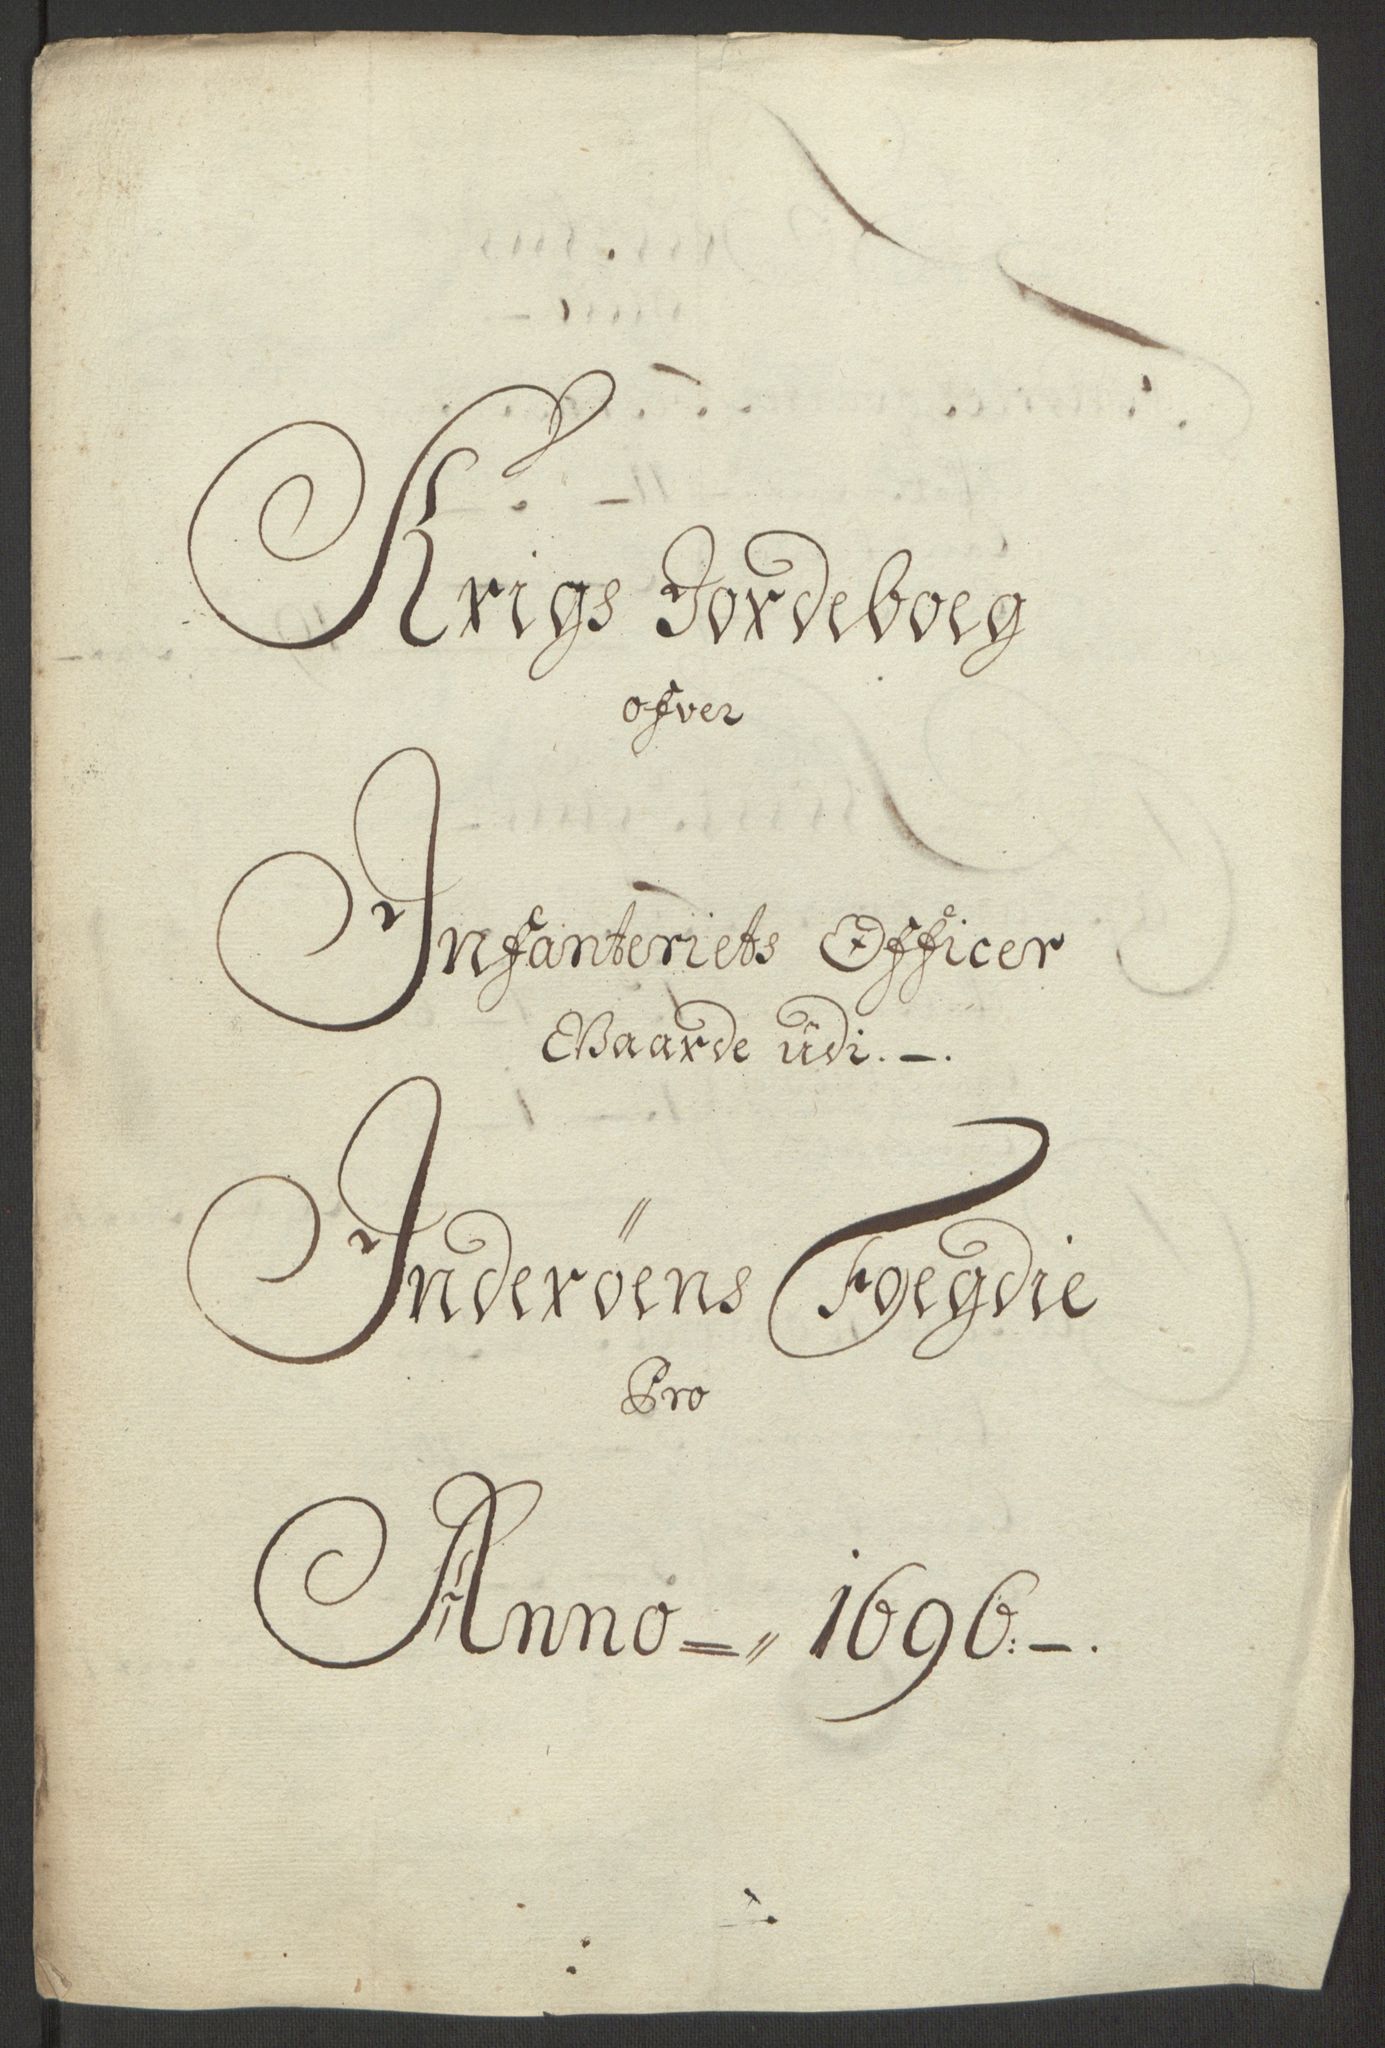 Krigs Jordeboeg
ofver
Infanteriets Officer
Gaarde udi. -.
Inderöens Foegdie
Pro
Anno = 1696. -.